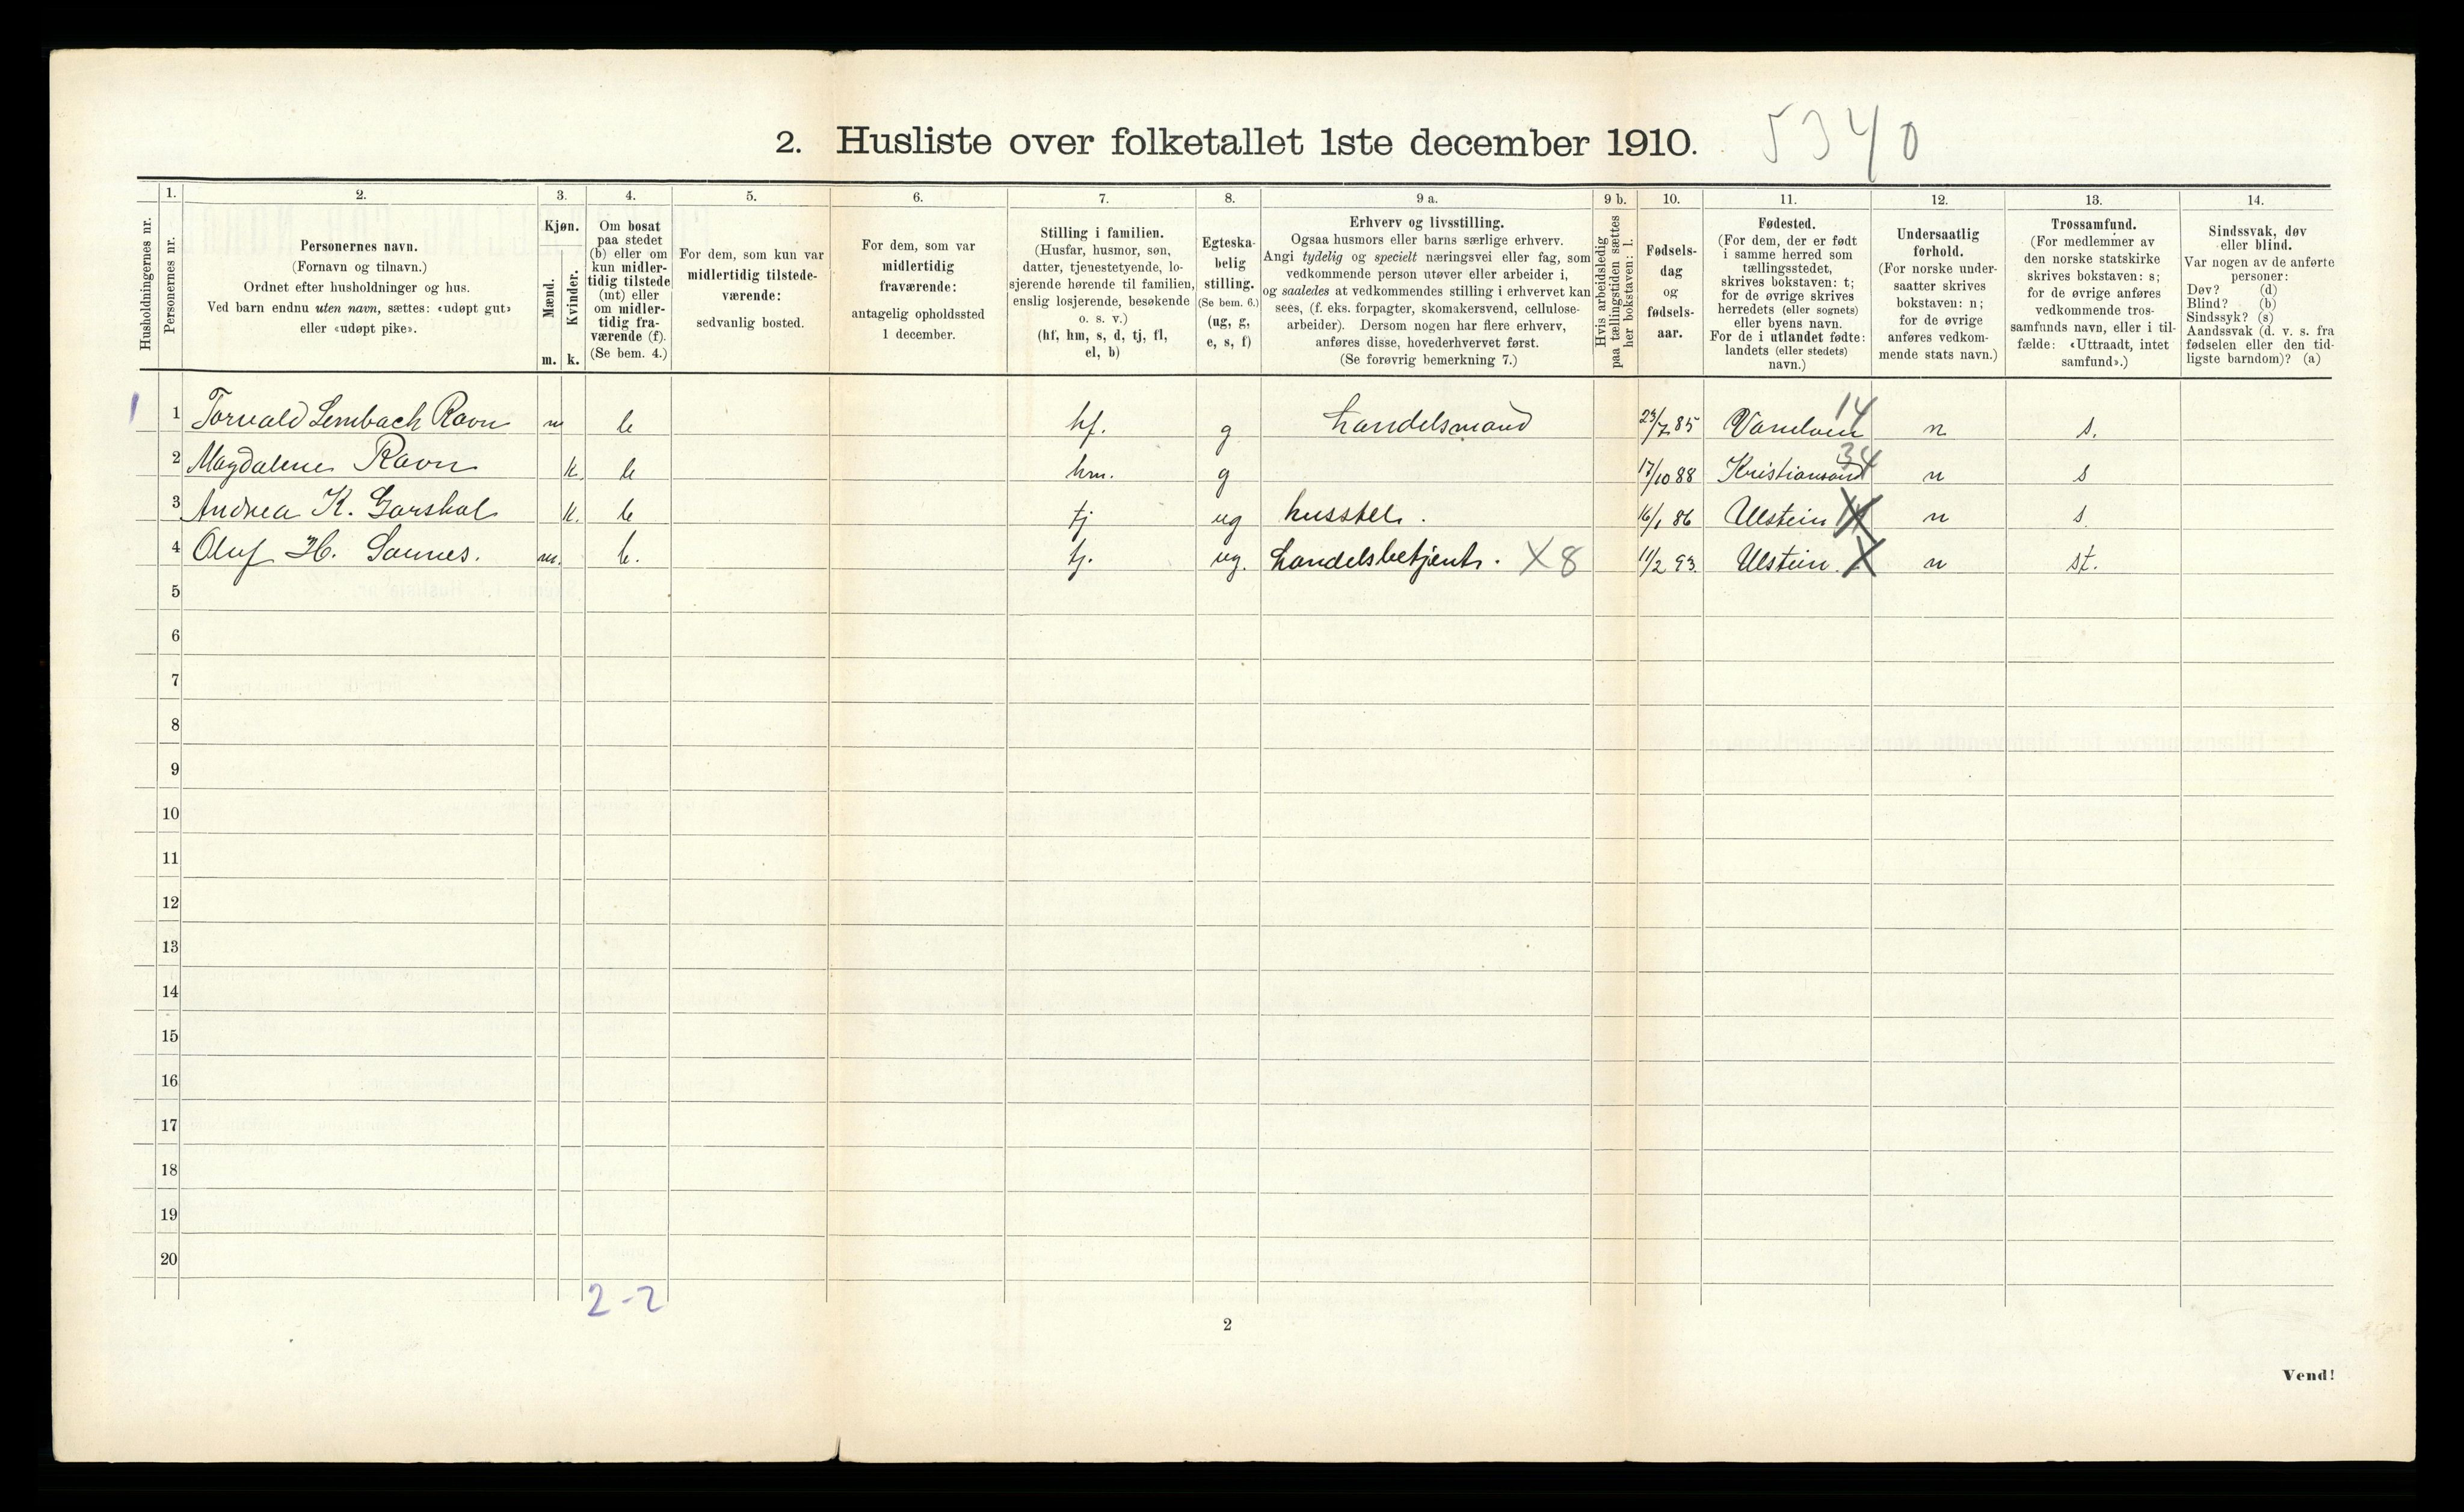 2. Husliste over folketallet 1ste december 1910. 5340
Husholdningernes nr.
1. Personernes nr.
2. Personernes navn.
(Fornavn og tilnavn.)
Ordnet efter husholdninger og hus.
Ved barn endnu uten navn, sættes: «udøpt gut»
eller «udøpt pike».
3. Kjøn.
Mænd. m.
Kvinder. k.
4. Om bosat
paa stedet
(b) eller om
kun midler-
tidig tilstede
(mt) eller
om midler-
tidig fra-
værende (f).
(Se bem. 4.)
5. For dem, som kun var
midlertidig tilstede-
værende:
sedvanlig bosted.
6. For dem, som var
midlertidig
fraværende:
antagelig opholdssted
1 december.
7. Stilling i familien.
(Husfar, husmor, søn,
datter, tjenestetyende, lo-
sjerende hørende til familien,
enslig losjerende, besøkende
o. s. v.)
(hf, hm, s, d, tj, fl,
el, b)
8. Egteska-
belig
stilling.
(Se bem. 6.)
(ug, g,
e, s, f)
9 a. Erhverv og livsstilling.
Ogsaa husmors eller barns særlige erhverv.
Angi tydelig og specielt næringsvei eller fag, som
vedkommende person utøver eller arbeider i,
og saaledes at vedkommendes stilling i erhvervet kan
sees, (f. eks. forpagter, skomakersvend, cellulose-
arbeider). Dersom nogen har flere erhverv,
anføres disse, hovederhvervet først.
(Se forøvrig bemerkning 7.)
9 b. Hvis arbeidsledig
paa tællingstiden sættes
her bokstaven: l.
10. Fødsels-
dag
og
fødsels-
aar.
11. Fødested.
(For dem, der er født
i samme herred som
tællingsstedet,
skrives bokstaven: t;
for de øvrige skrives
herredets (eller sognets)
eller byens navn.
For de i utlandet fødte:
landets (eller stedets)
navn.)
12. Undersaatlig
forhold.
(For norske under-
saatter skrives
bokstaven: n;
for de øvrige
anføres vedkom-
mende stats navn.)
13. Trossamfund.
(For medlemmer av
den norske statskirke
skrives bokstaven: s;
for de øvrige anføres
vedkommende tros-
samfunds navn, eller i til-
fælde: «Uttraadt, intet
samfund».)
14. Sindssvak, døv
eller blind.
Var nogen av de anførte
personer:
Døv? (d)
Blind? (b)
Sindssyk? (s)
Aandssvak (d. v. s. fra
fødselen eller den tid-
ligste barndom)? (a)
1 1 Torvald Lembach Ravn m b hf. g handelsmand 23/7 85 Vanelven 14 n s.
2 Magdalene Ravn k. b hm. g 17/10 88 Kristiansand 34 n s
3 Andrea K. Garshol k. b tj ug husstel. 16/1 86 Ulstein n s
4 Oluf H. Saunes. m. b. tj. ug. handelsbetjent. X8 11/2 93. Ulstein. X n st.
5
6
7
8
9
10
11
12
13
14
15
16
17
18
19
20
2-2
2
Vend!